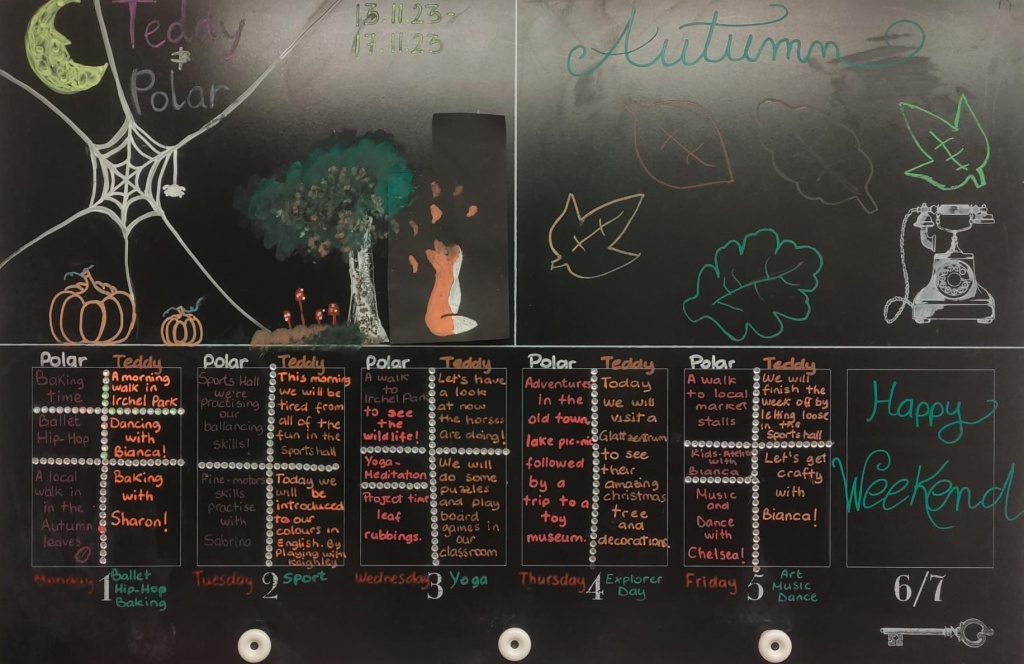 Teddy
&
Polar
13.11.23-
17.11.23
Autumn
Polar
Baking
time
Ballet
Hip-Hop
A local
walk in
in the
Autumn
leaves
Teddy
A morning
walk in
Irchel Park
Dancing
with
Bianca!
Baking
with
Sharon!
Monday
1
Ballet
Hip-Hop
Baking
Polar
Sports Hall
we're
Practising
our
ballancing
skills!
Fine-motors
skills
practise
with
Sabrina
Teddy
This morning
we will be
tired from
all of the
fun in the
Sports hall
Today we
will be
introduced
to our
colours in
English. By
Playing with
Keighley
Tuesday
2
Sport
Polar
A walk
in
Irchel Park
to see
the
wildlife!
Yoga-
Meditation
Project time
leaf
rubbings.
Teddy
Let's have
a look
at how
the horses
are doing!
We will
do some
puzzles
and play
board
games in
our
classroom
Wednesday
3
Yoga
Polar
Adventures
in the
old town,
lake pic-nic
followed
by a
trip to a
toy
museum.
Teddy
Today
we will
visit a
Glattzentrum
to see
their
amazing
christmas
tree and
decorations.
Thursday
4
Explorer
Day
Polar
A walk
to local
market
stalls
Kids-Atelier
with
Bianca
Music
and
Dance
with
Chelsea!
Teddy
We will
finish the
week off by
letting loose
in the
Sports hall
Let's get
crafty
with
Bianca!
Friday
5
Art
Music
Dance
Happy
Weekend
6/7